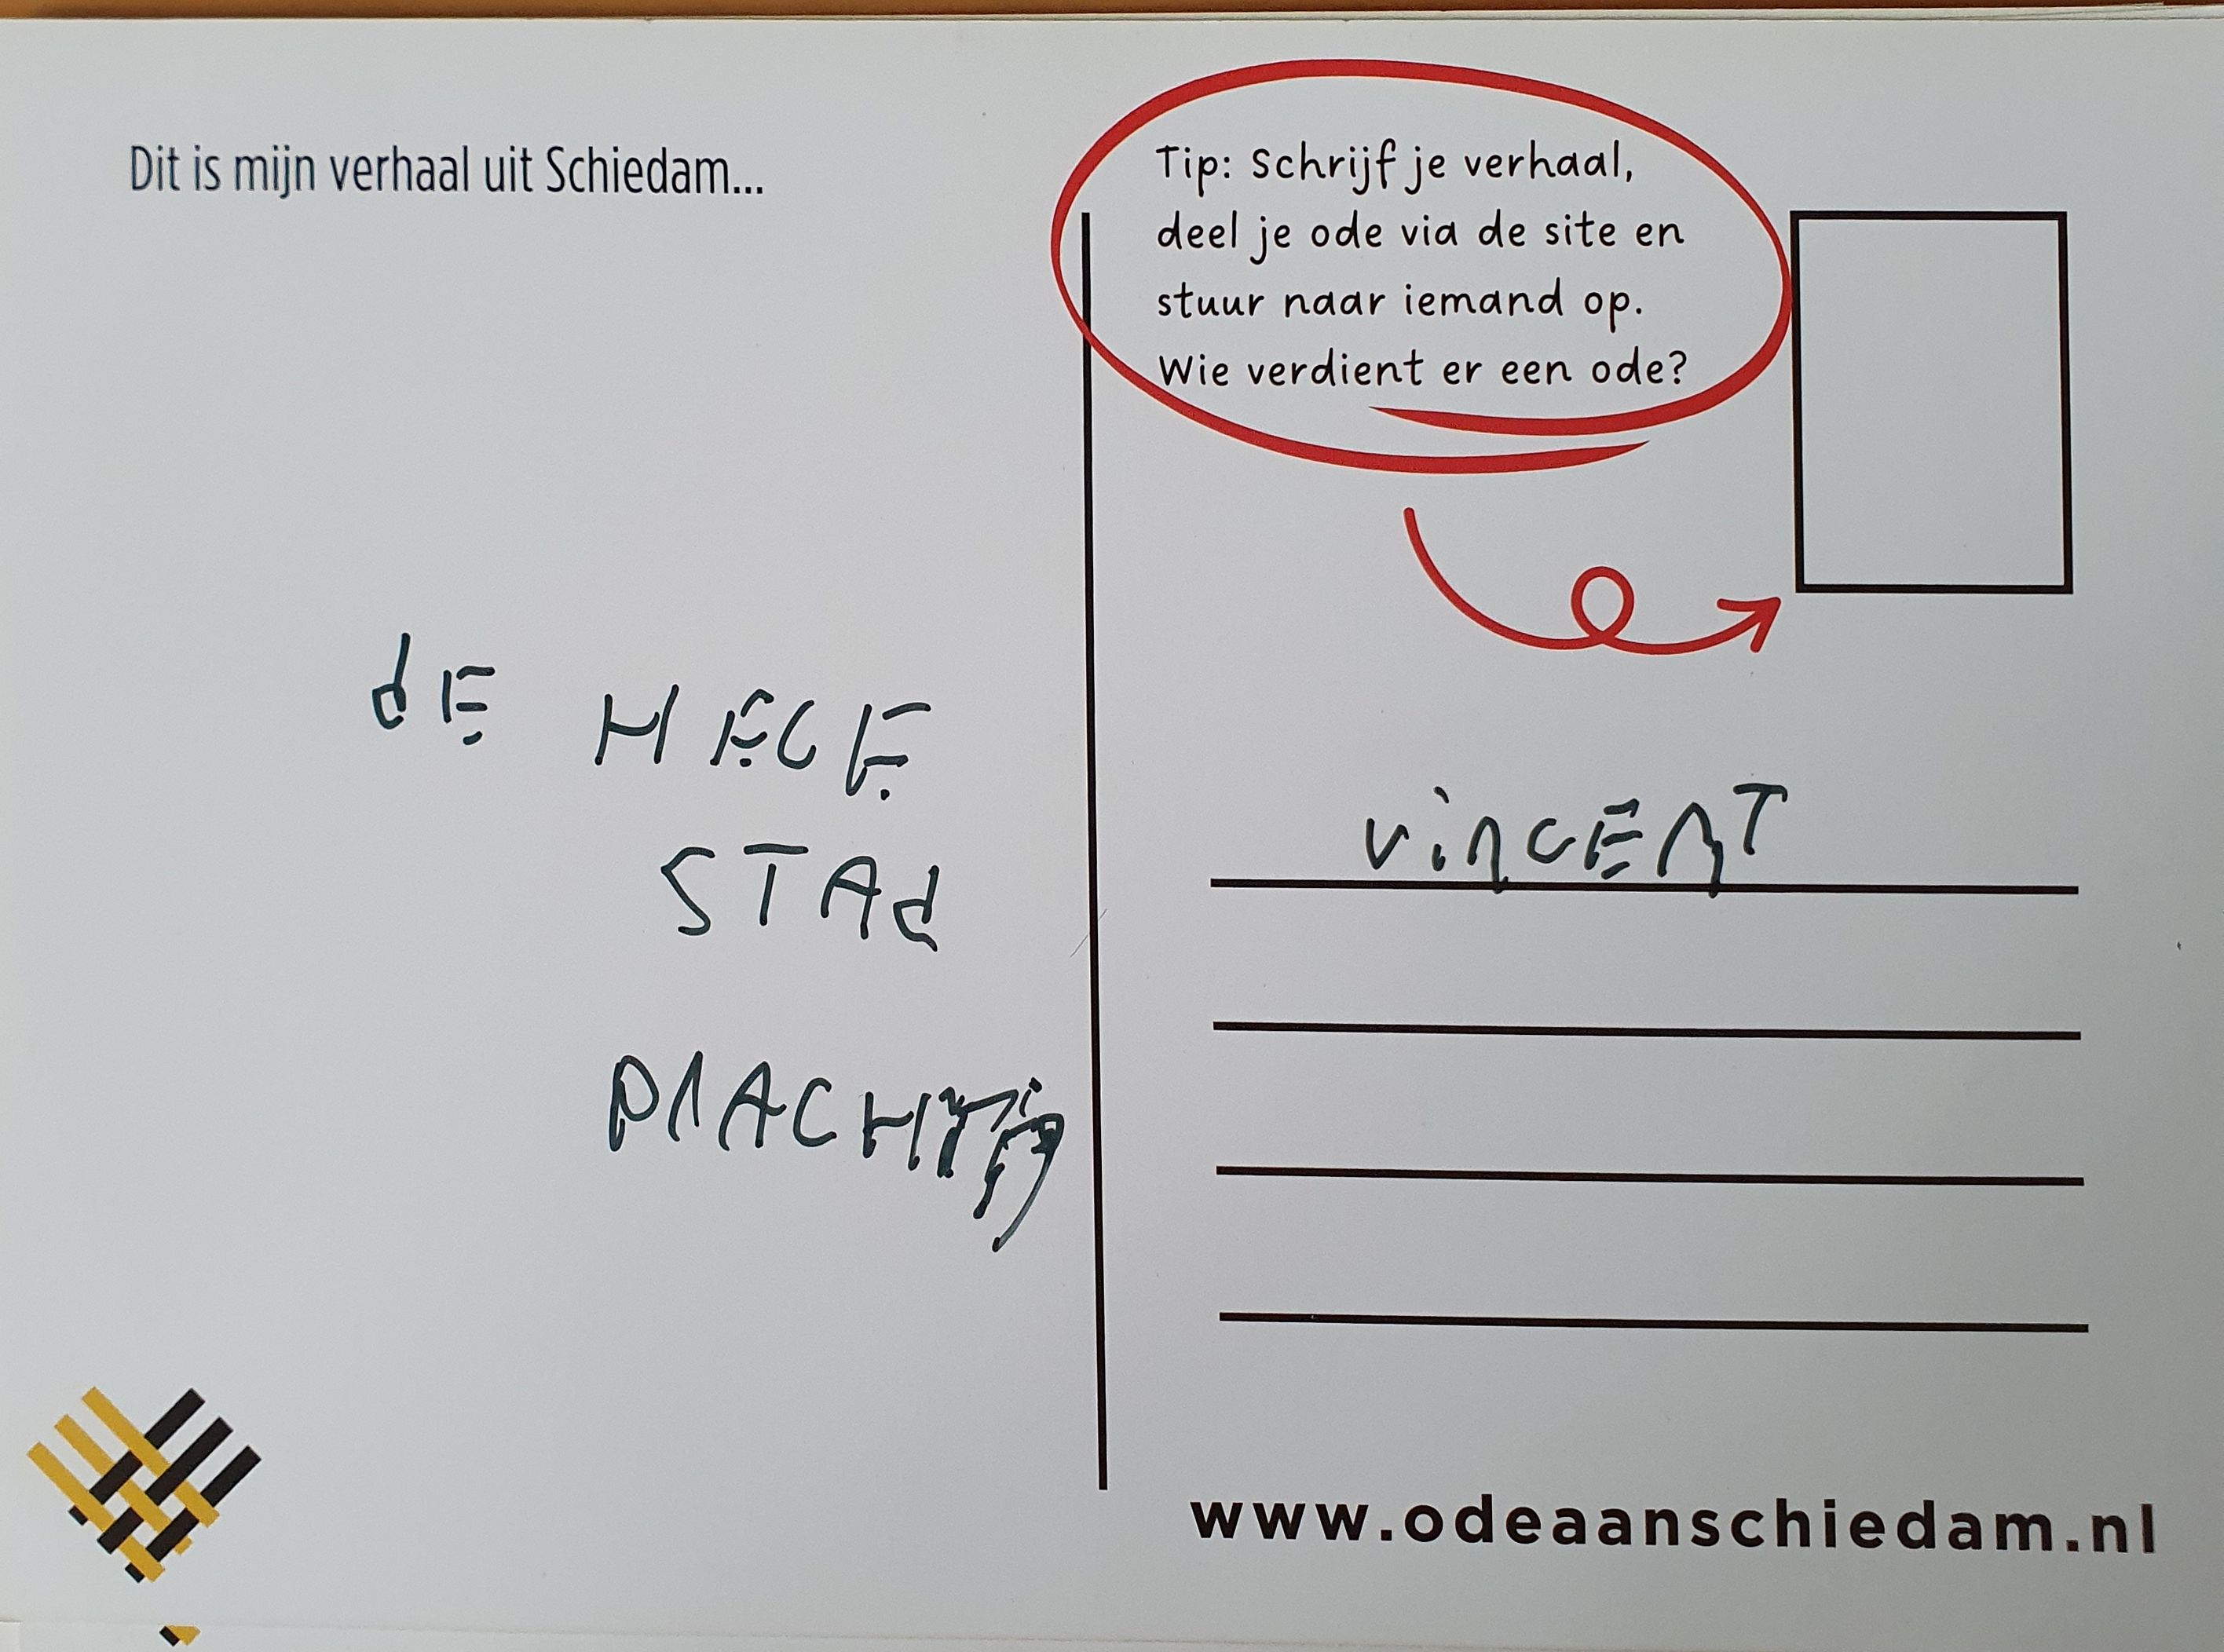 Dit is mijn verhaal uit Schiedam...
Tip: Schrijf je verhaal,
deel je ode via de site en
stuur naar iemand op.
Wie verdient er een ode?
dE HECE
STAd
VincEnT
www.odeaanschiedam.nl